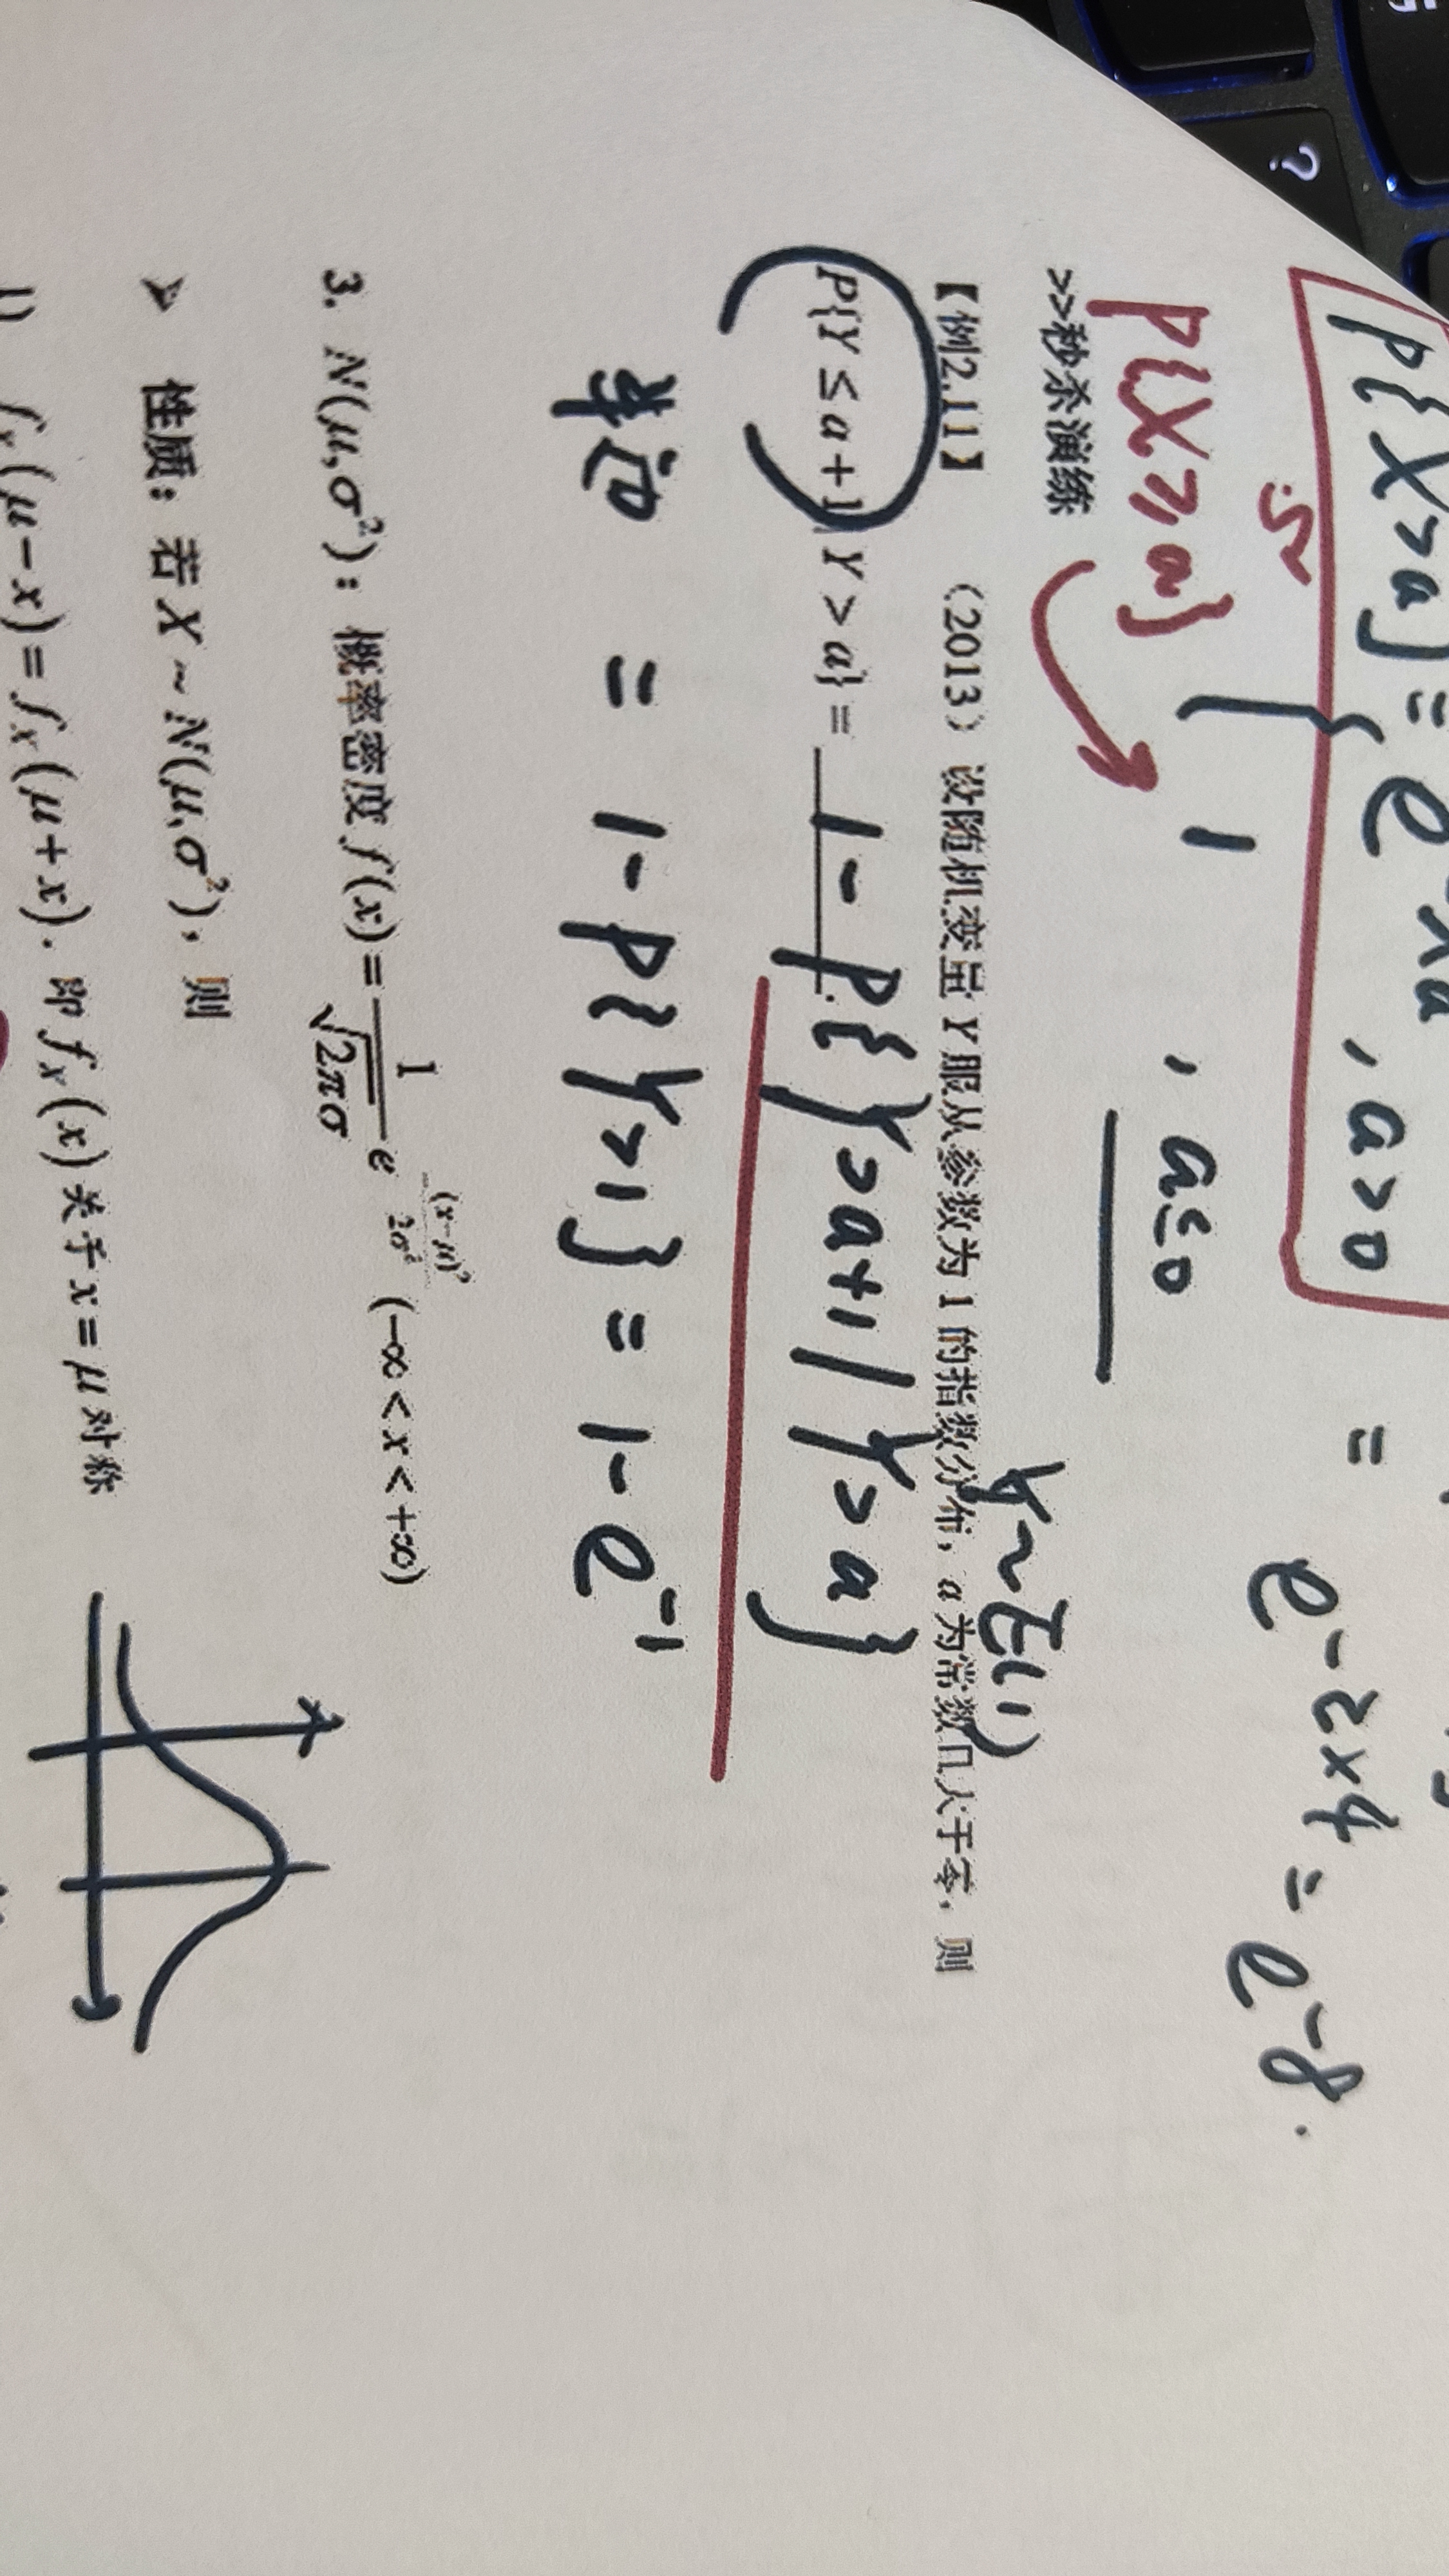 P{X>a} = { e^-λa , a>0
1 , a≤0
= e^-2×4 = e^-8.
P{X≥a}
>>秒杀演练
Y~E(1)
【例2.11】 (2013) 设随机变量 Y 服从参数为 1 的指数分布, a 为常数且大于零, 则
P{Y ≤ a + 1 | Y > a} = ______.
1 - P{Y>a+1 | Y>a}
= 1 - P{Y>1} = 1 - e^-1
3. N(μ,σ²): 概率密度 f(x) = 1/(√2π σ) e^-(x-μ)²/2σ² (-∞ < x < +∞)
➤ 性质: 若 X ~ N(μ,σ²), 则
1) f_X(μ-x) = f_X(μ+x). 即 f_X(x) 关于 x = μ 对称